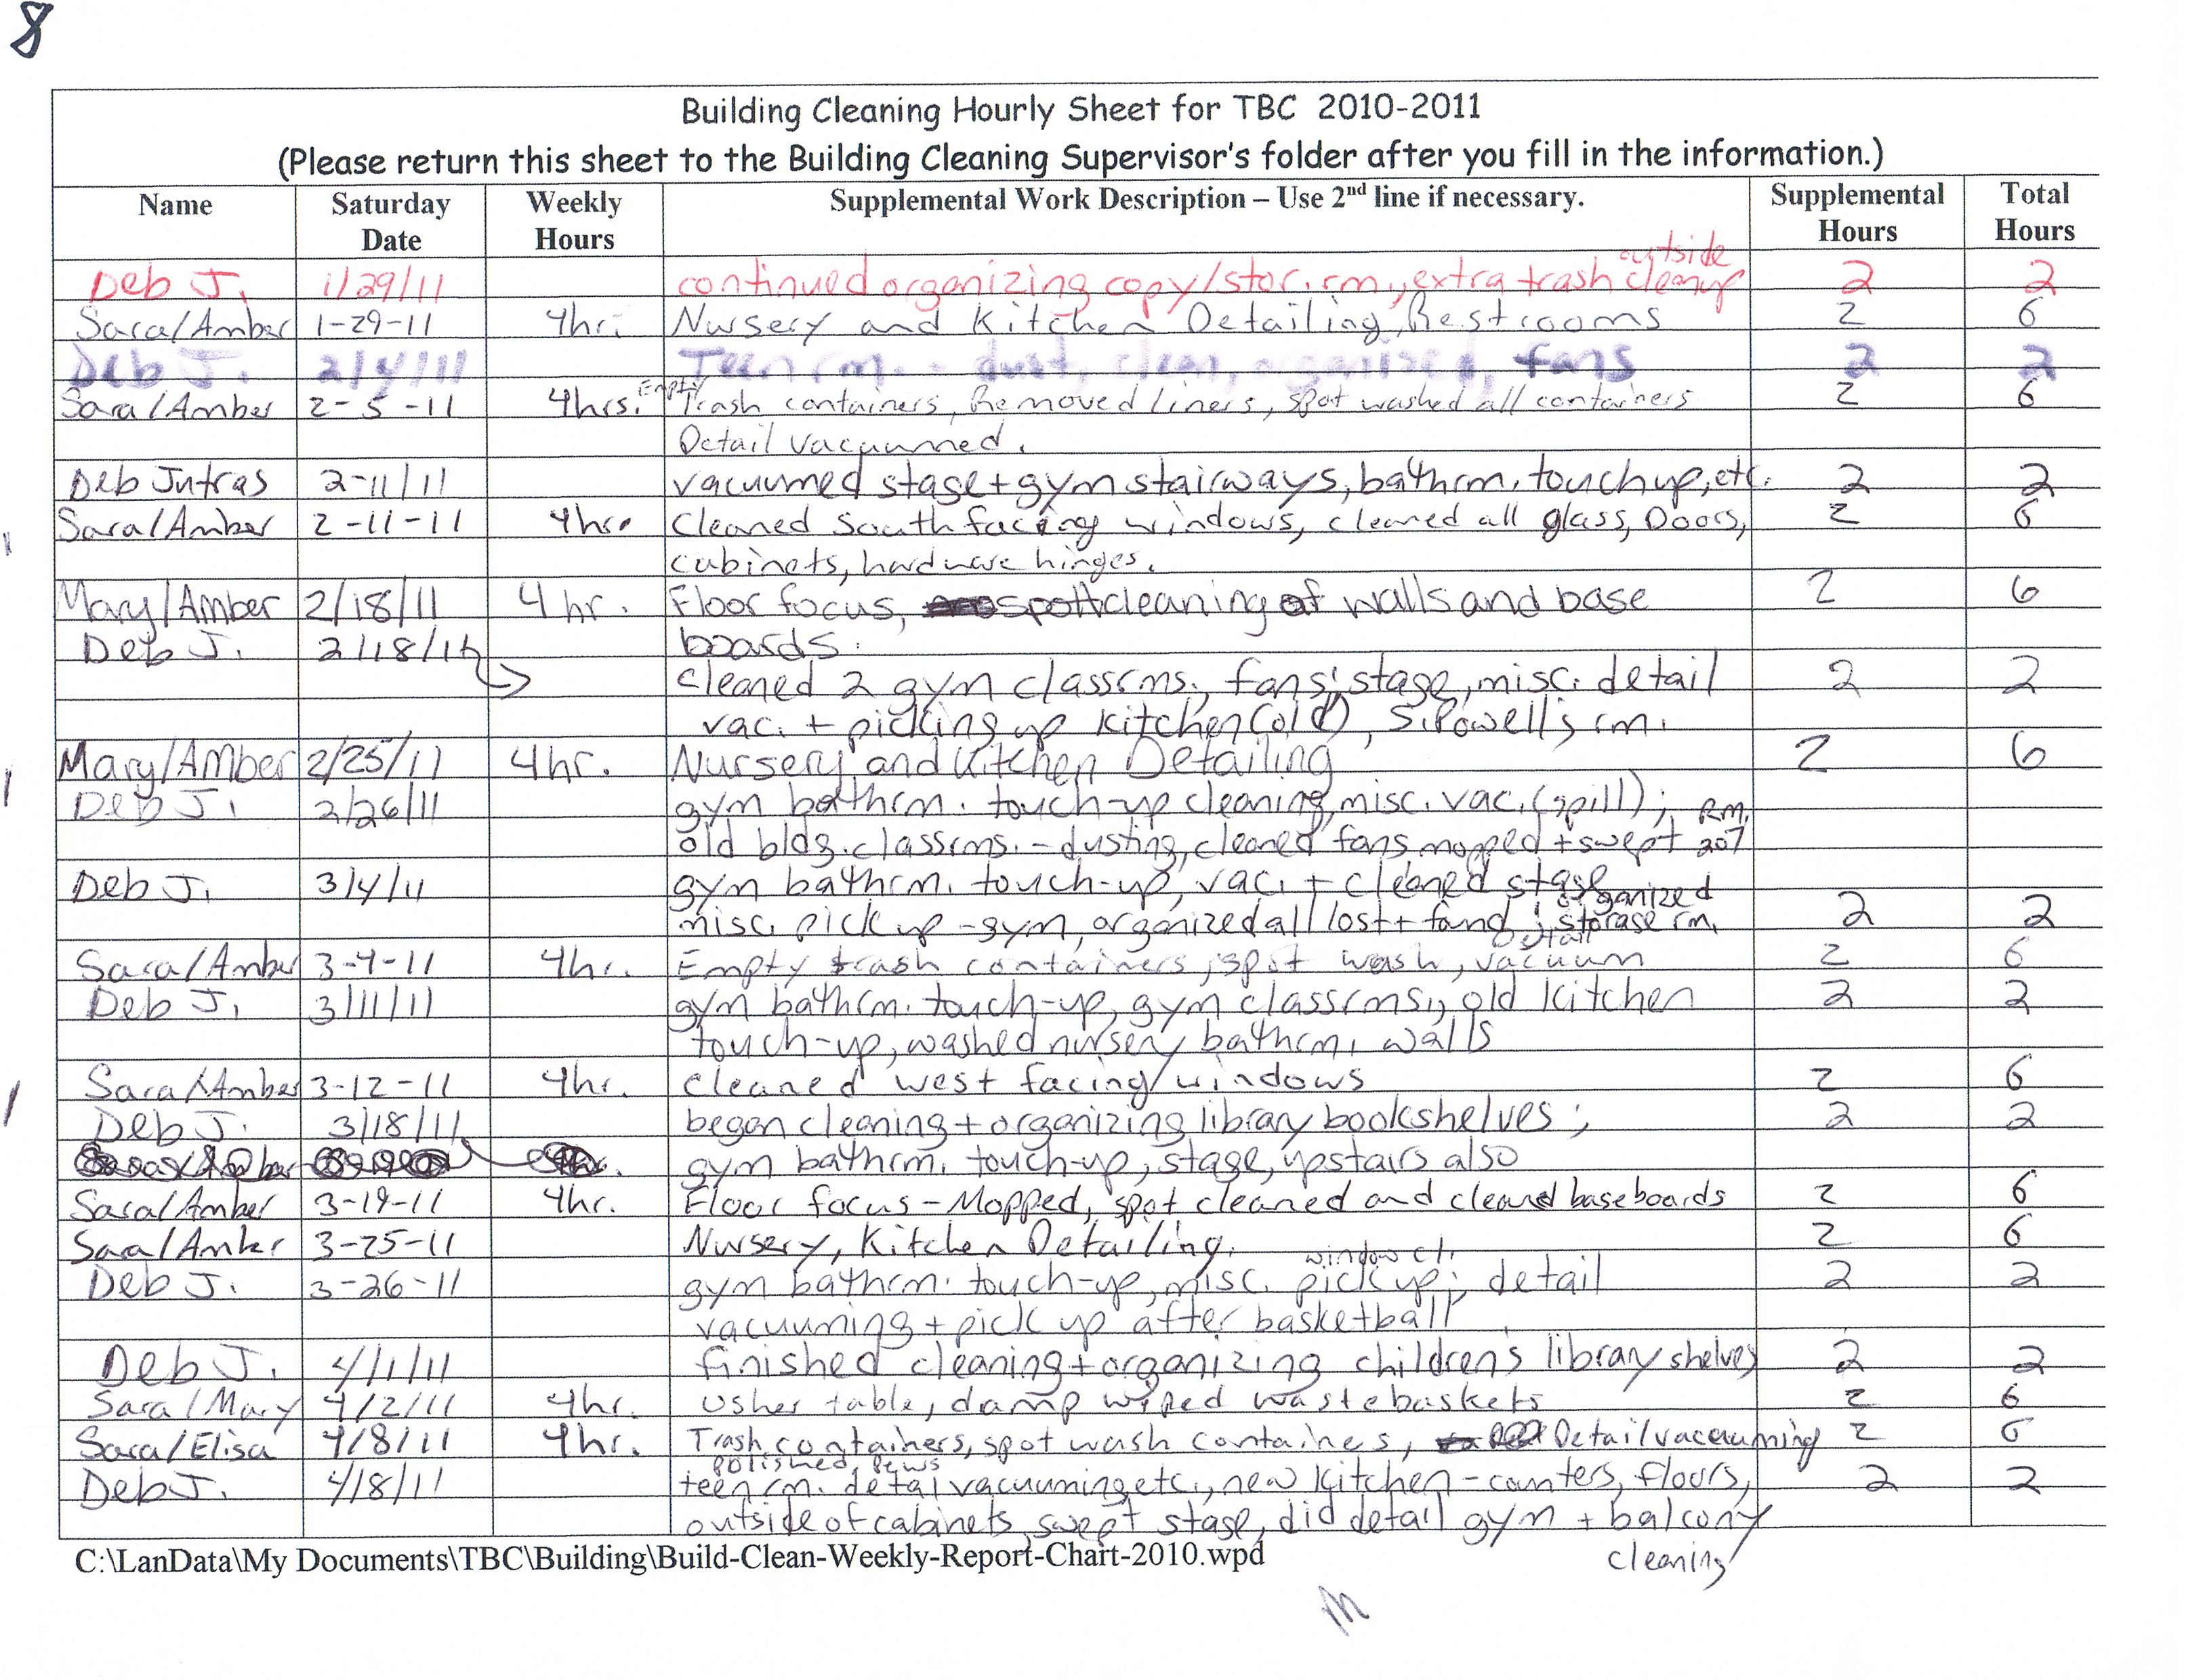 8
Building Cleaning Hourly Sheet for TBC 2010-2011
(Please return this sheet to the Building Cleaning Supervisor's folder after you fill in the information.)
Name Saturday Date Weekly Hours Supplemental Work Description – Use 2nd line if necessary. Supplemental Hours Total Hours
outside
Deb J. 1/29/11 continued organizing copy/stor. rm., extra trash cleanup 2 2
Sara/Amber 1-29-11 4hr. Nursery and Kitchen Detailing, Restrooms 2 6
Deb J. 2/4/11 Teen rm. - dust, clean, organized, fans 2 2
Sara/Amber 2-5-11 4hrs. Empty Trash containers, Removed liners, spot washed all containers 2 6
Detail vacuumed.
Deb Jutras 2-11/11 vacuumed stage + gym stairways, bathrm. touchup, etc. 2 2
Sara/Amber 2-11-11 4hr. Cleaned South facing windows, cleaned all glass, Doors, 2 6
cabinets, hardware hinges.
Mary/Amber 2/18/11 4hr. Floor focus, spott cleaning of walls and base 2 6
Deb J. 2/18/11 boards.
cleaned 2 gym classrms., fans, stage, misc. detail 2 2
vac. + picking up kitchen (old), S. Powell's rm.
Mary/Amber 2/25/11 4hr. Nursery and Kitchen Detailing 2 6
Deb J. 2/26/11 gym bathrm. touch-up cleaning, misc. vac. (spill); RM.
old bldg. classrms. - dusting, cleaned fans mopped + swept 207
Deb J. 3/4/11 gym bathrm. touch-up, vac. + cleaned stage
organized
misc. pick up - gym, organized all lost + found; storage rm. 2 2
Detail
Sara/Amber 3-4-11 4hr. Empty trash containers, spot wash, vacuum 2 6
Deb J. 3/11/11 gym bathrm. touch-up, gym classrms., old kitchen 2 2
touch-up, washed nursery bathrm. walls
Sara/Amber 3-12-11 4hr. Cleaned west facing windows 2 6
Deb J. 3/18/11 began cleaning + organizing library bookshelves; 2 2
gym bathrm. touch-up, stage, upstairs also
Sara/Amber 3-19-11 4hr. Floor focus - Mopped, spot cleaned and cleaned baseboards 2 6
Sara/Amber 3-25-11 Nursery, Kitchen Detailing. 2 6
window cl.
Deb J. 3-26-11 gym bathrm. touch-up, misc. pickup; detail 2 2
vacuuming + pick up after basketball
Deb J. 4/1/11 finished cleaning + organizing children's library shelves 2 2
Sara/Mary 4/2/11 4hr. usher table, damp wiped wastebaskets 2 6
Sara/Elisa 4/8/11 4hr. Trash containers, spot wash containes, Detail vacuuming 2 6
polished pews
Deb J. 4/8/11 teen rm. detail vacuuming etc., new kitchen - counters, floors, 2 2
outside of cabinets, swept stage, did detail gym + balcony
cleaning
C:\LanData\My Documents\TBC\Building\Build-Clean-Weekly-Report-Chart-2010.wpd